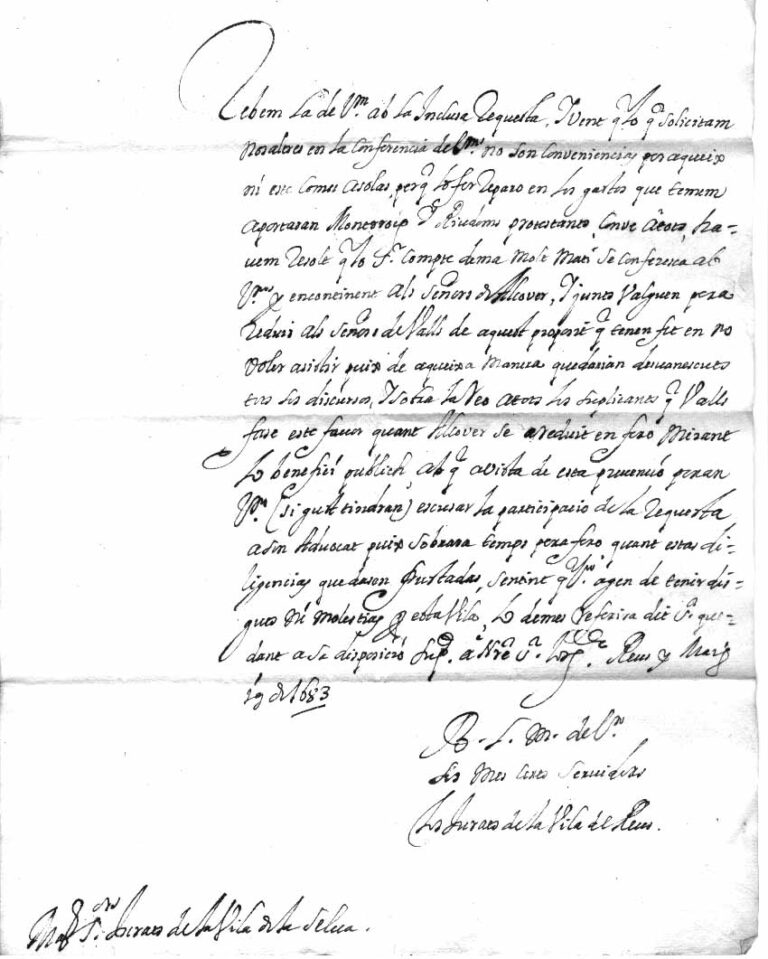 Rebem la de Vm ab la Inclusa Requesta, Y vent q lo q solicitam
Nosaltres en la Conferencia de Vms no son Conveniencias per aqueix
ni este Comes asolas, perq lo fer Reparo en los gastos que temem
aportaran Monrroig Riudoms protestants, Conve atots, ha-
vem Resolt q lo Sr Compte dema Molt Mati Se Conferesca ab
Vms y encontinent als señors de Alcover, Y junts Valguen pera
Reduir als señors de Valls de aquest proposit q tenen fet en no
voler asistir puix de aqueixa Manera quedarian desvanescuts
tots los discursos, Y sobra la Veo atots los suplicants q Valls
fase este favor quant Alcover Se a reduit en fero Mirant
Lo benefici publich, ab q avista de esta prevencio poran
Vms (si gust tindran) escusar la participacio de la Requesta
a son Advocat puix sobrara temps pera fero quant estas di-
ligencias quedasen frustadas, sentint q Vms agen de tenir dis-
gust Ni Molestias y esta Vila, Lo demes referira dit Sr que-
dant a Sa disposicio a Nre Sr Reus y Mars
19 de 1683
B. L. M. de Vm
Los Mes Certs Servidors
Los Jurats de la Vila de Reus.
Magchs Srs Jurats de la Vila de la Selva.